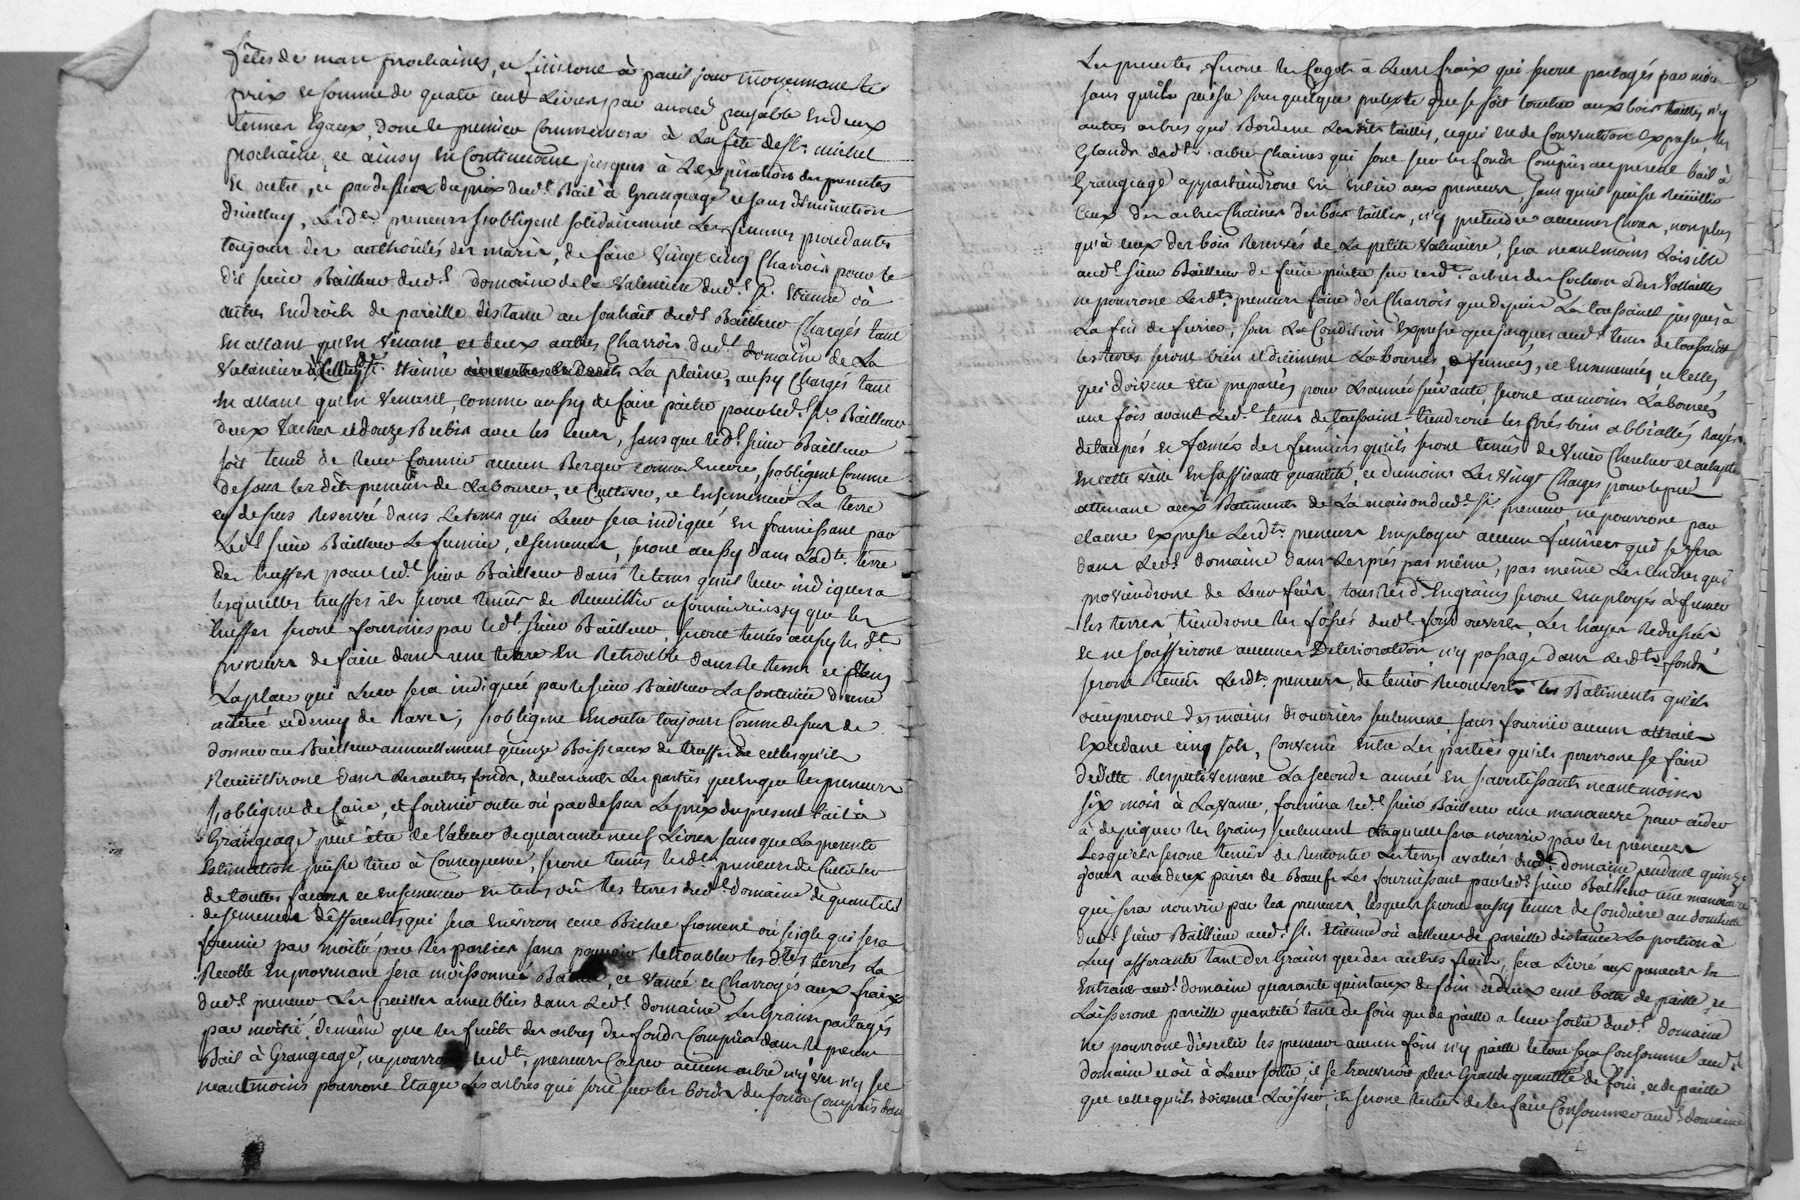 fêtes de mars prochaines, et finiront à pareil jour moyennant le
prix et somme de quatre cent Livres par année payable en deux
termes Egaux, dont le premier Commencera à La fête de St. michel
prochaine, et ainsy En Continuant jusques à Lexpiration des presentes
Et outre, et par dessus du prix dud.t Bail à Grangeage et sans diminution
diceluy, Lesd.ts preneurs s'obligent solidairement Les femmes procedantes
toujour des authorités des maris, de faire Vingt cinq Charrois pour le
dit sieur Bailleur dud.t domaine de la Valensiere aud.t St. Etienne où à
autres Endroits de pareille distance au souhait dud.t Bailleur Chargés tant
En allant qu'En Venant et deux autres Charrois dud.t domaine de La
Valenciere St. Etienne La plaine, aussy Chargés tant
En allant qu'En Venant, comme aussy de faire paitre pour led.t Sr. Bailleur
deux Vaches et douze Brebis avec les leurs, sans que led.t sieur Bailleur
soit tenu de leur fournir aucun Berger comme Encore, s'obligent Comme
dessus lesdits preneurs de Labourer, et Cultiver, et Ensemencer La terre
cy dessus Reservé dans Le tems qui Leur sera indiqué En fournissant par
Led.t sieur Bailleur Le fumier, et semences, feront aussy dans Lad.te terre
des truffes pour led.t sieur Bailleur dans le tems qu'il leur indiquera
lesquelles truffes ils seront tenus de Recueillir que les
truffes seront fournies par led.t sieur Bailleur, seront tenus aussy lesd.ts
preneurs de faire dans une terre En Retrouble dans le tems et dans
La place qui Leur sera indiquée par le sieur Bailleur La Contenue d'une
et demy de Raves; s'obligent En outre toujour Comme dessus de
donner au Bailleur annuellement quinze Boisseaux de truffes de celles qu'ils
Recueilliront dans Les autres fonds, declarants Les parties que ce que les preneurs
s'obligent de faire, et fournir outre où par dessus Le prix du present bail à
Grangeage peut être de Valeur de quarante neuf Livres sans que La presente
Estimation puisse tirer à Consequence, seront tenus lesd.ts preneurs de Cultiver
de toutes façons et Ensemencer En tems dû les terres dud.t domaine de quantité
de semences differentes qui sera Environ cent Bichet froment où seigle qui sera
fournie par moitié par les parties sans pouvoir Retroubler lesd.tes terres La
Recolte En provenant sera moissonnée Battue, et Vanée et Charroyés aux fraix
dud.t preneur Les pailles ameublies dans Led.t domaine Les Grains partagés
par moitié de même que les fruits des arbres des fonds Compris dans le present
Bail à Grangeage, ne pourront lesd.ts preneurs Couper aucun arbre n'y n'y sec
neantmoins pourront Etager Les arbres qui sont sur les bords des fonds Compris dans
Les presentes, feront les fagots à Leurs fraix qui seront partagés par moitié
sans qu'ils puisse sous quelque pretexte que ce soit toucher aux bois taillis n'y
autres arbres qui Bordent Lesdits taillis, ce qui Est de Convention Expresse les
Glands desd.ts arbres Chaines qui sont sur les fonds Compris au present bail à
Grangeage appartiendront En Entier aux preneurs, sans qu'il puisse Recueillir
Ceux des arbres Chaines des bois taillis, n'y pretendre aucunes Choses, non plus
qu'à ceux des bois Reservés de La petite Valensiere, sera neantmoins Loisible
aud.t sieur Bailleur de faire paitre sur lesd.ts arbres des Cochons et des Volailles
ne pourront Lesd.ts preneurs faire des Charrois que depuis La toussaint jusques à
La fin de fevrier, sous La Condition Expresse que jusques aud.t tems de toussaint
les terres seront bien et düement Labourées, et fumées, et Ensemencées et celles
qui doivent etre preparées pour L'année suivante, seront au moins Labourées
une fois avant Led.t tems de toussaint tiendront les Prés bien
et fumés des fumiers qu'ils seront tenus de Venir Chercher et achepter
En cette Ville En suffisante quantité, et du moins Les Vingt Charges pour le pré
attenant aux Batiments de La maison dud.t Sr. preneur ne pourront par
clause Expresse Lesd.ts preneurs Employer aucun fumiers qui se fera
dans Led.t domaine dans Les prés pas même, pas même Les cendres qui
proviendront de Leur feux, tous lesd.ts Engrains seront Employés à fumer
les terres, tiendront les fossés dud.t fond ouverts, Les hayes Redressées
et ne souffriront aucunes Deterioration, n'y passage dans lesd.ts fonds
seront tenus Lesd.ts preneurs, de tenir Recouverts les Batiments qu'ils
occuperont des mains d'ouvriers seulement, sans fournir aucun attrait
Excedant cinq sols, Convenu Entre Les parties qu'ils pourront se faire
dedette Respectivement La seconde année En s'avertissants neantmoins
six mois à Lavance, fournira led.t sieur Bailleur une manœuvre pour aider
à depiquer les Grains seulement Laquelle sera nourrie par les preneurs
Lesquels seront tenus de Remonter Les terres avalées dud.t domaine pendant quinze
jours avec deux paires de Bœufs Les fournissant par led.t sieur Bailleur une manœuvre
qui sera nourrie par les preneurs lesquels seront aussy tenus de Conduire au domicile
dud.t sieur Bailleur aud.t St. Etienne où ailleurs de pareille distance La portion à
Luy afferante tant des Grains que des autres fruits, sera Livré aux preneurs En
Entrant aud.t domaine quarante quintaux de foin et deux cent bottes de paille, et
Laisseront pareille quantité tant de foin que de paille à leur sortie dud.t domaine
ne pourront divertir les preneurs aucun foin n'y paille le tout sera Consommé aud.t
domaine et où à Leur sortie il se trouveroit plus Grande quantité de foin, et de paille
que celle qu'ils doivent Laisser, ils seront tenus de les faire Consommer aud.t domaine